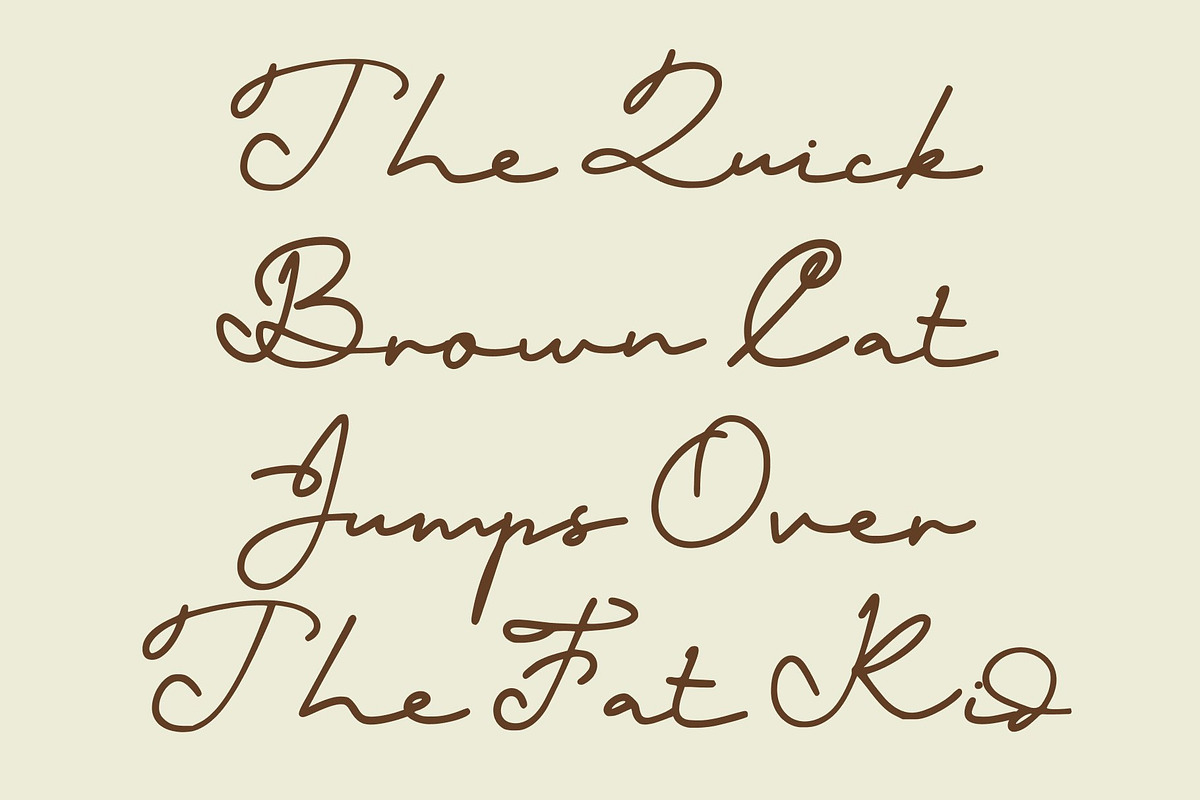 The Quick
Brown Cat
Jumps Over
The Fat Kid